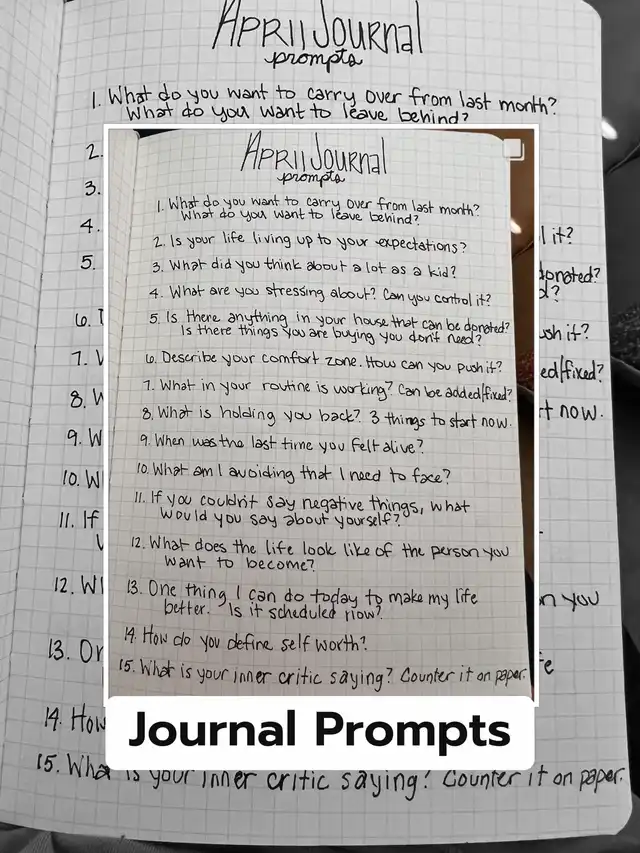 April Journal
prompts
1. What do you want to carry over from last month?
What do you want to leave behind?
2.
3.
4.
5.
6.
7.
8.
9.
10.
11. If
12.
13.
14. How
it?
donated?
it?
ed/fixed?
now.
you
April Journal
prompts
1. What do you want to carry over from last month?
What do you want to leave behind?
2. Is your life living up to your expectations?
3. What did you think about a lot as a kid?
4. What are you stressing about? Can you control it?
5. Is there anything in your house that can be donated?
Is there things you are buying you don't need?
6. Describe your comfort zone. How can you push it?
7. What in your routine is working? Can be added/fixed?
8. What is holding you back? 3 things to start now.
9. When was the last time you felt alive?
10. What am I avoiding that I need to face?
11. If you couldn't say negative things, what
would you say about yourself?
12. What does the life look like of the person you
want to become?
13. One thing I can do today to make my life
better. Is it scheduled now?
14. How do you define self worth?
15. What is your inner critic saying? Counter it on paper.
Journal Prompts
15. What is your inner critic saying? Counter it on paper.